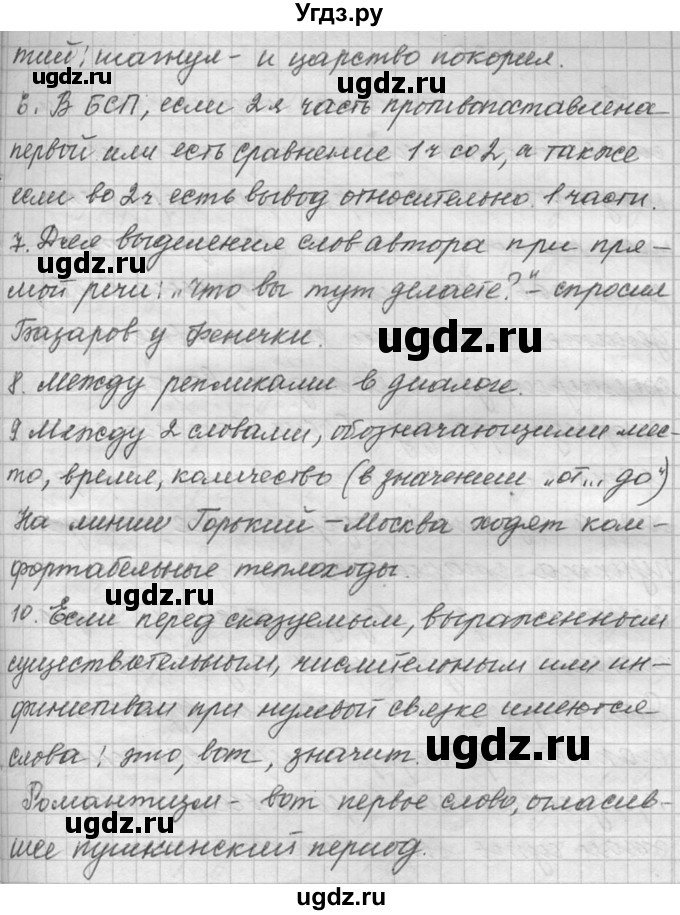 Угдз.ру
тий! шагнул - и царство покорил.
6. В БСП, если 2я часть противопоставлена
первой или есть сравнение 1ч со 2, а также
если во 2ч есть вывод относительно 1 части.
7. Для выделения слов автора при пря-
мой речи: „Что вы тут делаете?“ - спросил
Базаров у Фенечки.
8. Между репликами в диалоге.
9 Между 2 словами, обозначающими мес-
то, время, количество (в значении „от... до“)
На линии Горький - Москва ходят ком-
фортабельные теплоходы.
10. Если перед сказуемым, выраженным
существительным, числительным или ин-
финитивом при нулевой связке имеются
слова: это, вот, значит.
Романтизм - вот первое слово, огласив-
шее пушкинский период.
ugdz.ru
ugdz.ru
ugdz.ru
ugdz.ru
ugdz.ru
ugdz.ru
ugdz.ru
ugdz.ru